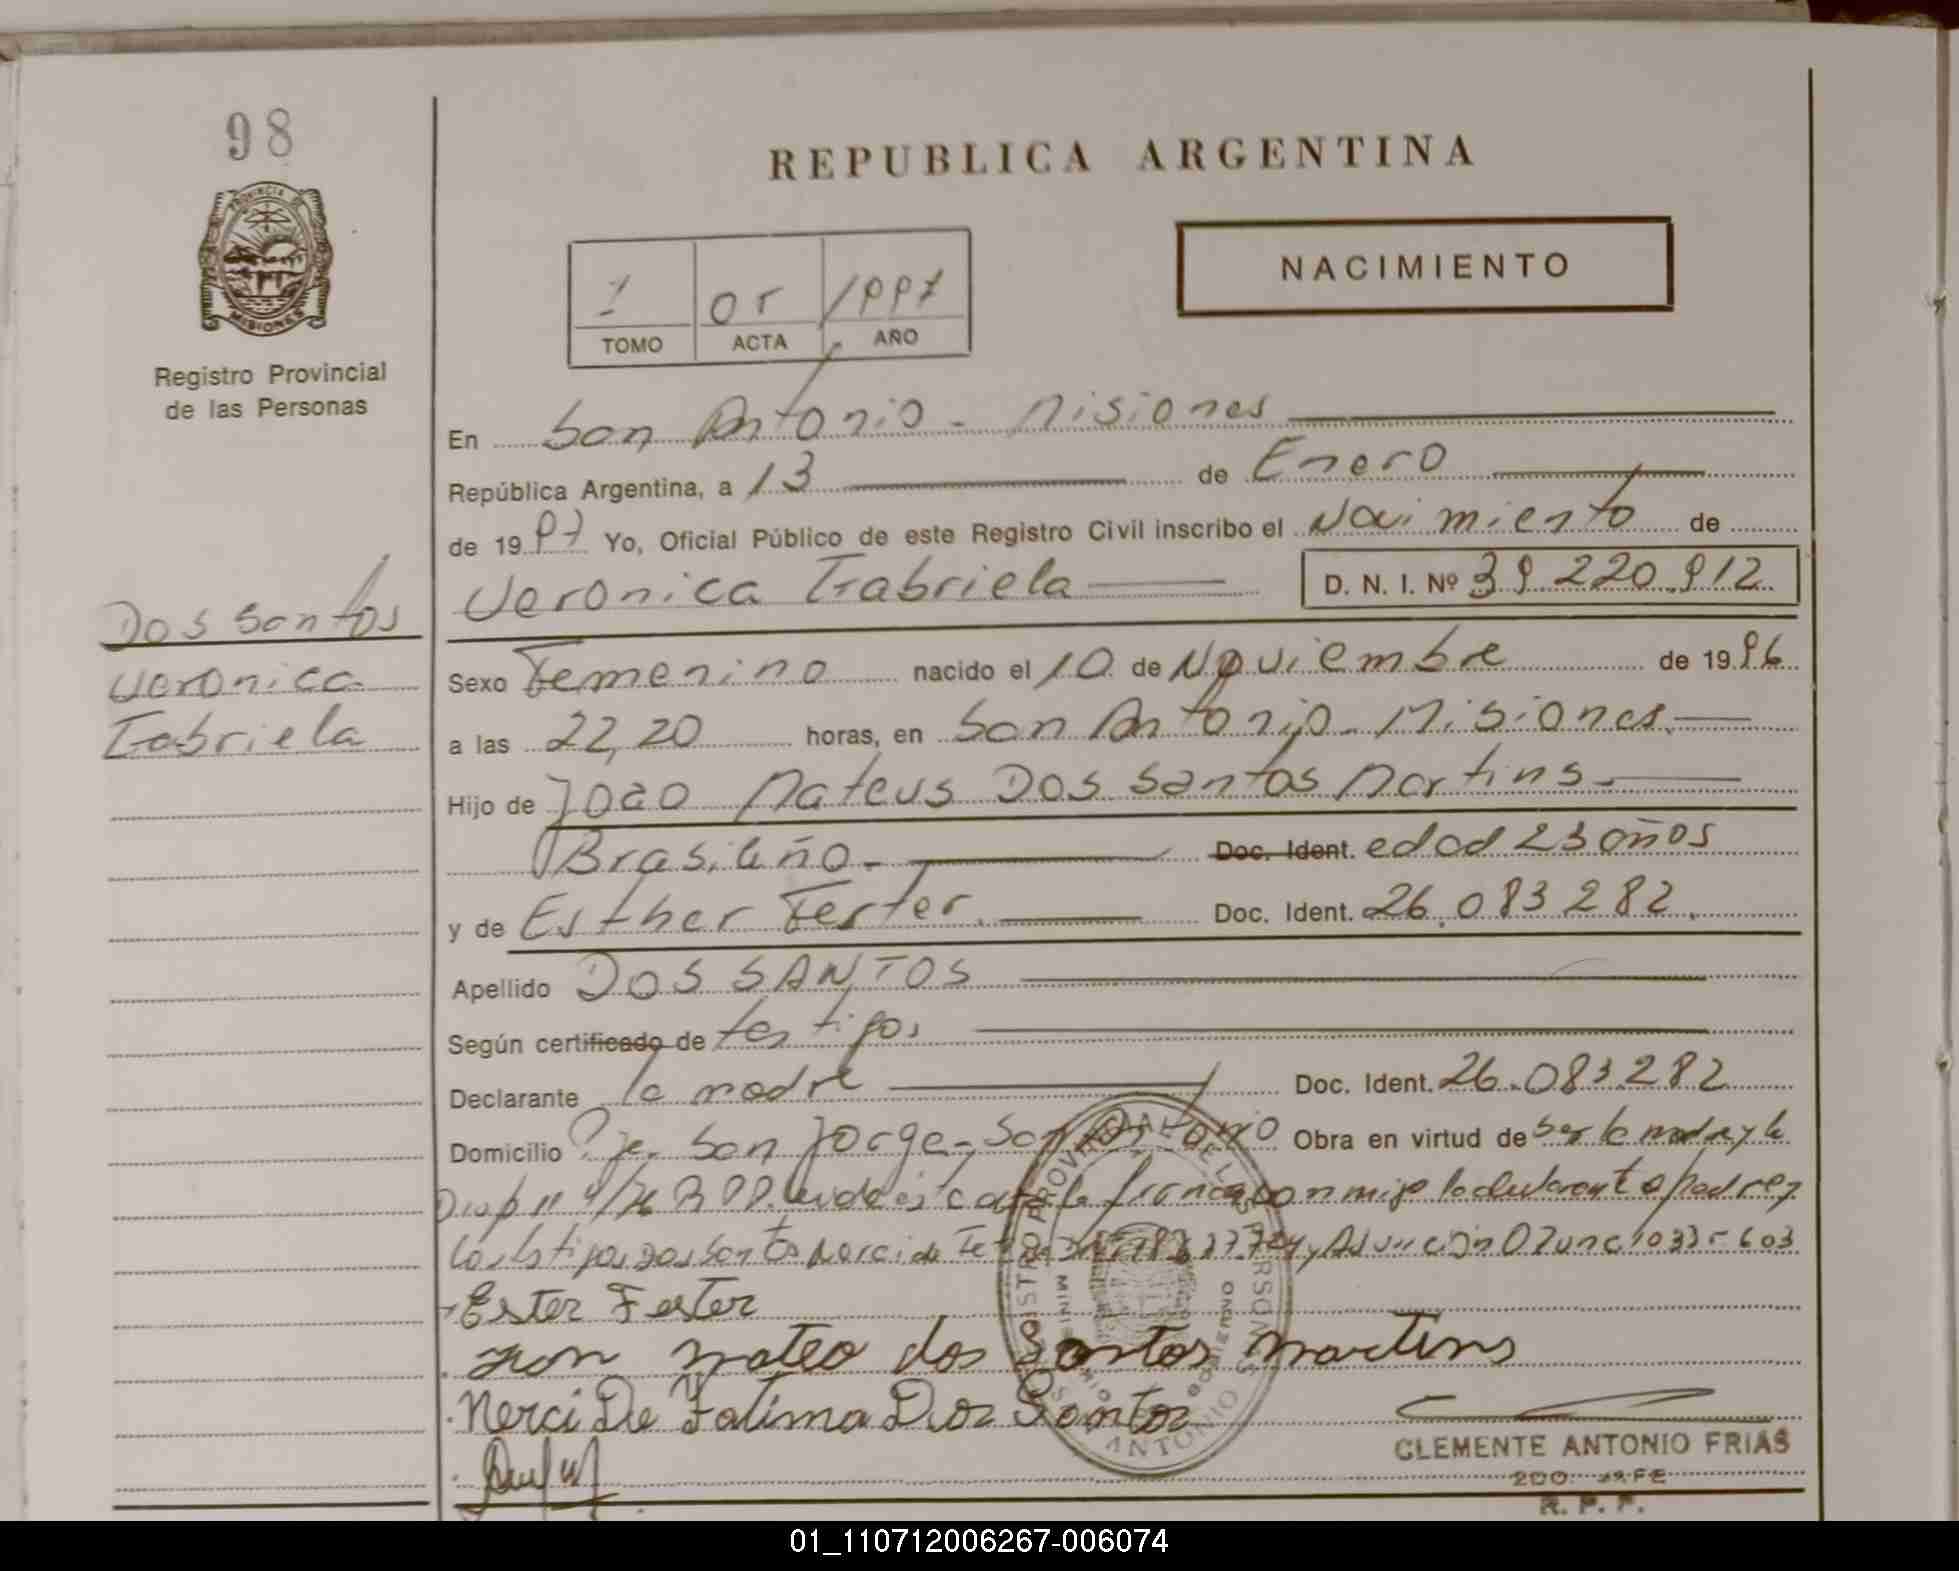 98
REPUBLICA ARGENTINA
PROVINCIA DE
MISIONES
Registro Provincial
de las Personas
NACIMIENTO
1 05 1997
TOMO ACTA AÑO
En San Antonio - Misiones
República Argentina, a 13 de Enero
de 1997 Yo, Oficial Público de este Registro Civil inscribo el Nacimiento de
Veronica Gabriela D. N. I. Nº 39.220.912
Dos Santos
Veronica
Gabriela
Sexo Femenino nacido el 10 de Noviembre de 1996
a las 22,20 horas, en San Antonio - Misiones
Hijo de Joao Mateus Dos Santos Martins
Brasileño - Doc. Ident. edad 23 años
y de Esther Ferter Doc. Ident. 26.083.282
Apellido DOS SANTOS
Según certificado de testigos
Declarante la madre Doc. Ident. 26.083.282
Domicilio Pje. San Jorge - San Antonio Obra en virtud de ser la madre y la
conmigo la declarante padre y
los testigos Dos Santos Nerci de y Asuncion
Ester Ferter
Juan Mateo dos Santos Martins
Nerci De Fatima Dos Santos
CLEMENTE ANTONIO FRIAS
R. P. P.
01_110712006267-006074